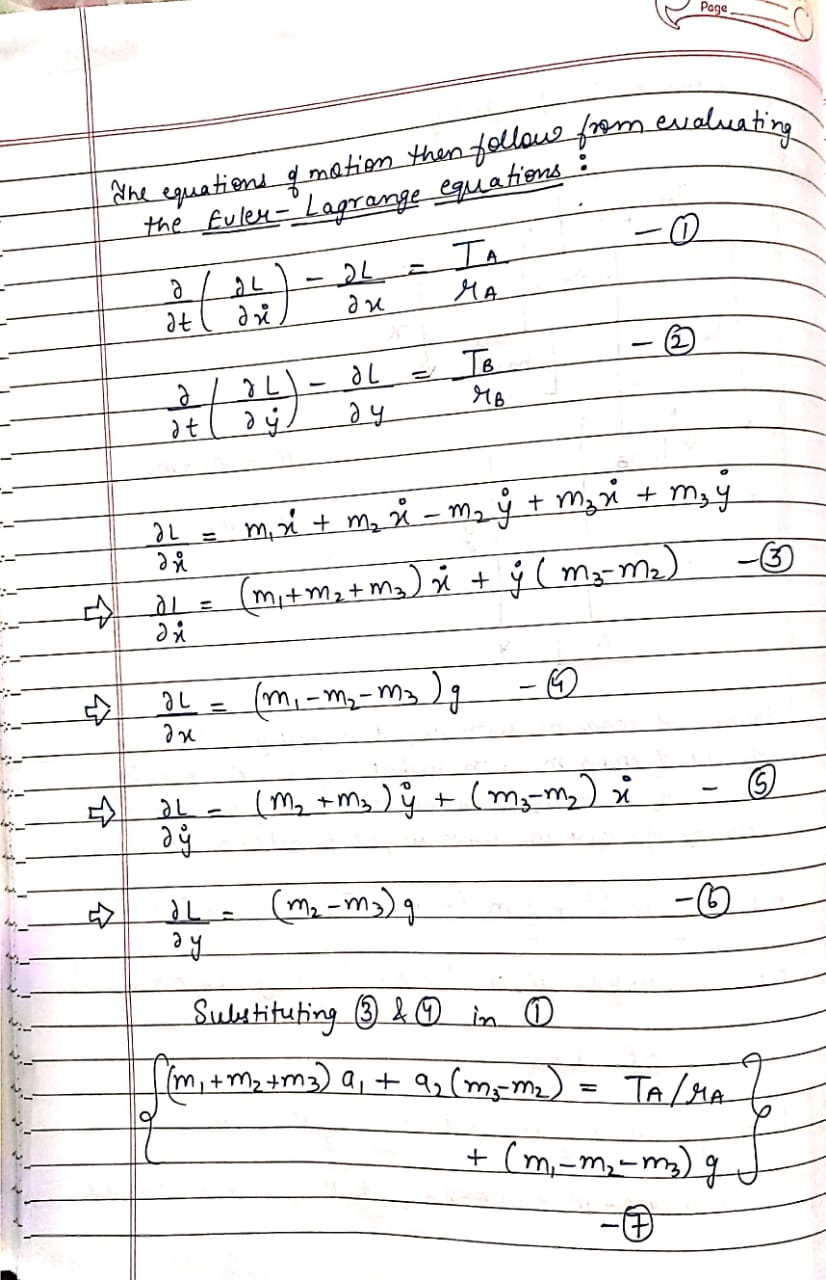 Page
The equations of motion then follow from evaluating
the Euler-Lagrange equations :
∂/∂t (∂L/∂ẋ) - ∂L/∂x = TA/rA -①
∂/∂t (∂L/∂ẏ) - ∂L/∂y = TB/rB -②
∂L/∂ẋ = m₁ẋ + m₂ẋ - m₂ẏ + m₃ẋ + m₃ẏ
⇨ ∂L/∂ẋ = (m₁+m₂+m₃)ẋ + ẏ(m₃-m₂) -③
⇨ ∂L/∂x = (m₁-m₂-m₃)g -④
⇨ ∂L/∂ẏ = (m₂+m₃)ẏ + (m₃-m₂)ẋ -⑤
⇨ ∂L/∂y = (m₂-m₃)g -⑥
Substituting ③ & ④ in ①
{(m₁+m₂+m₃)a₁ + a₂(m₃-m₂) = TA/rA
+ (m₁-m₂-m₃)g}
-⑦